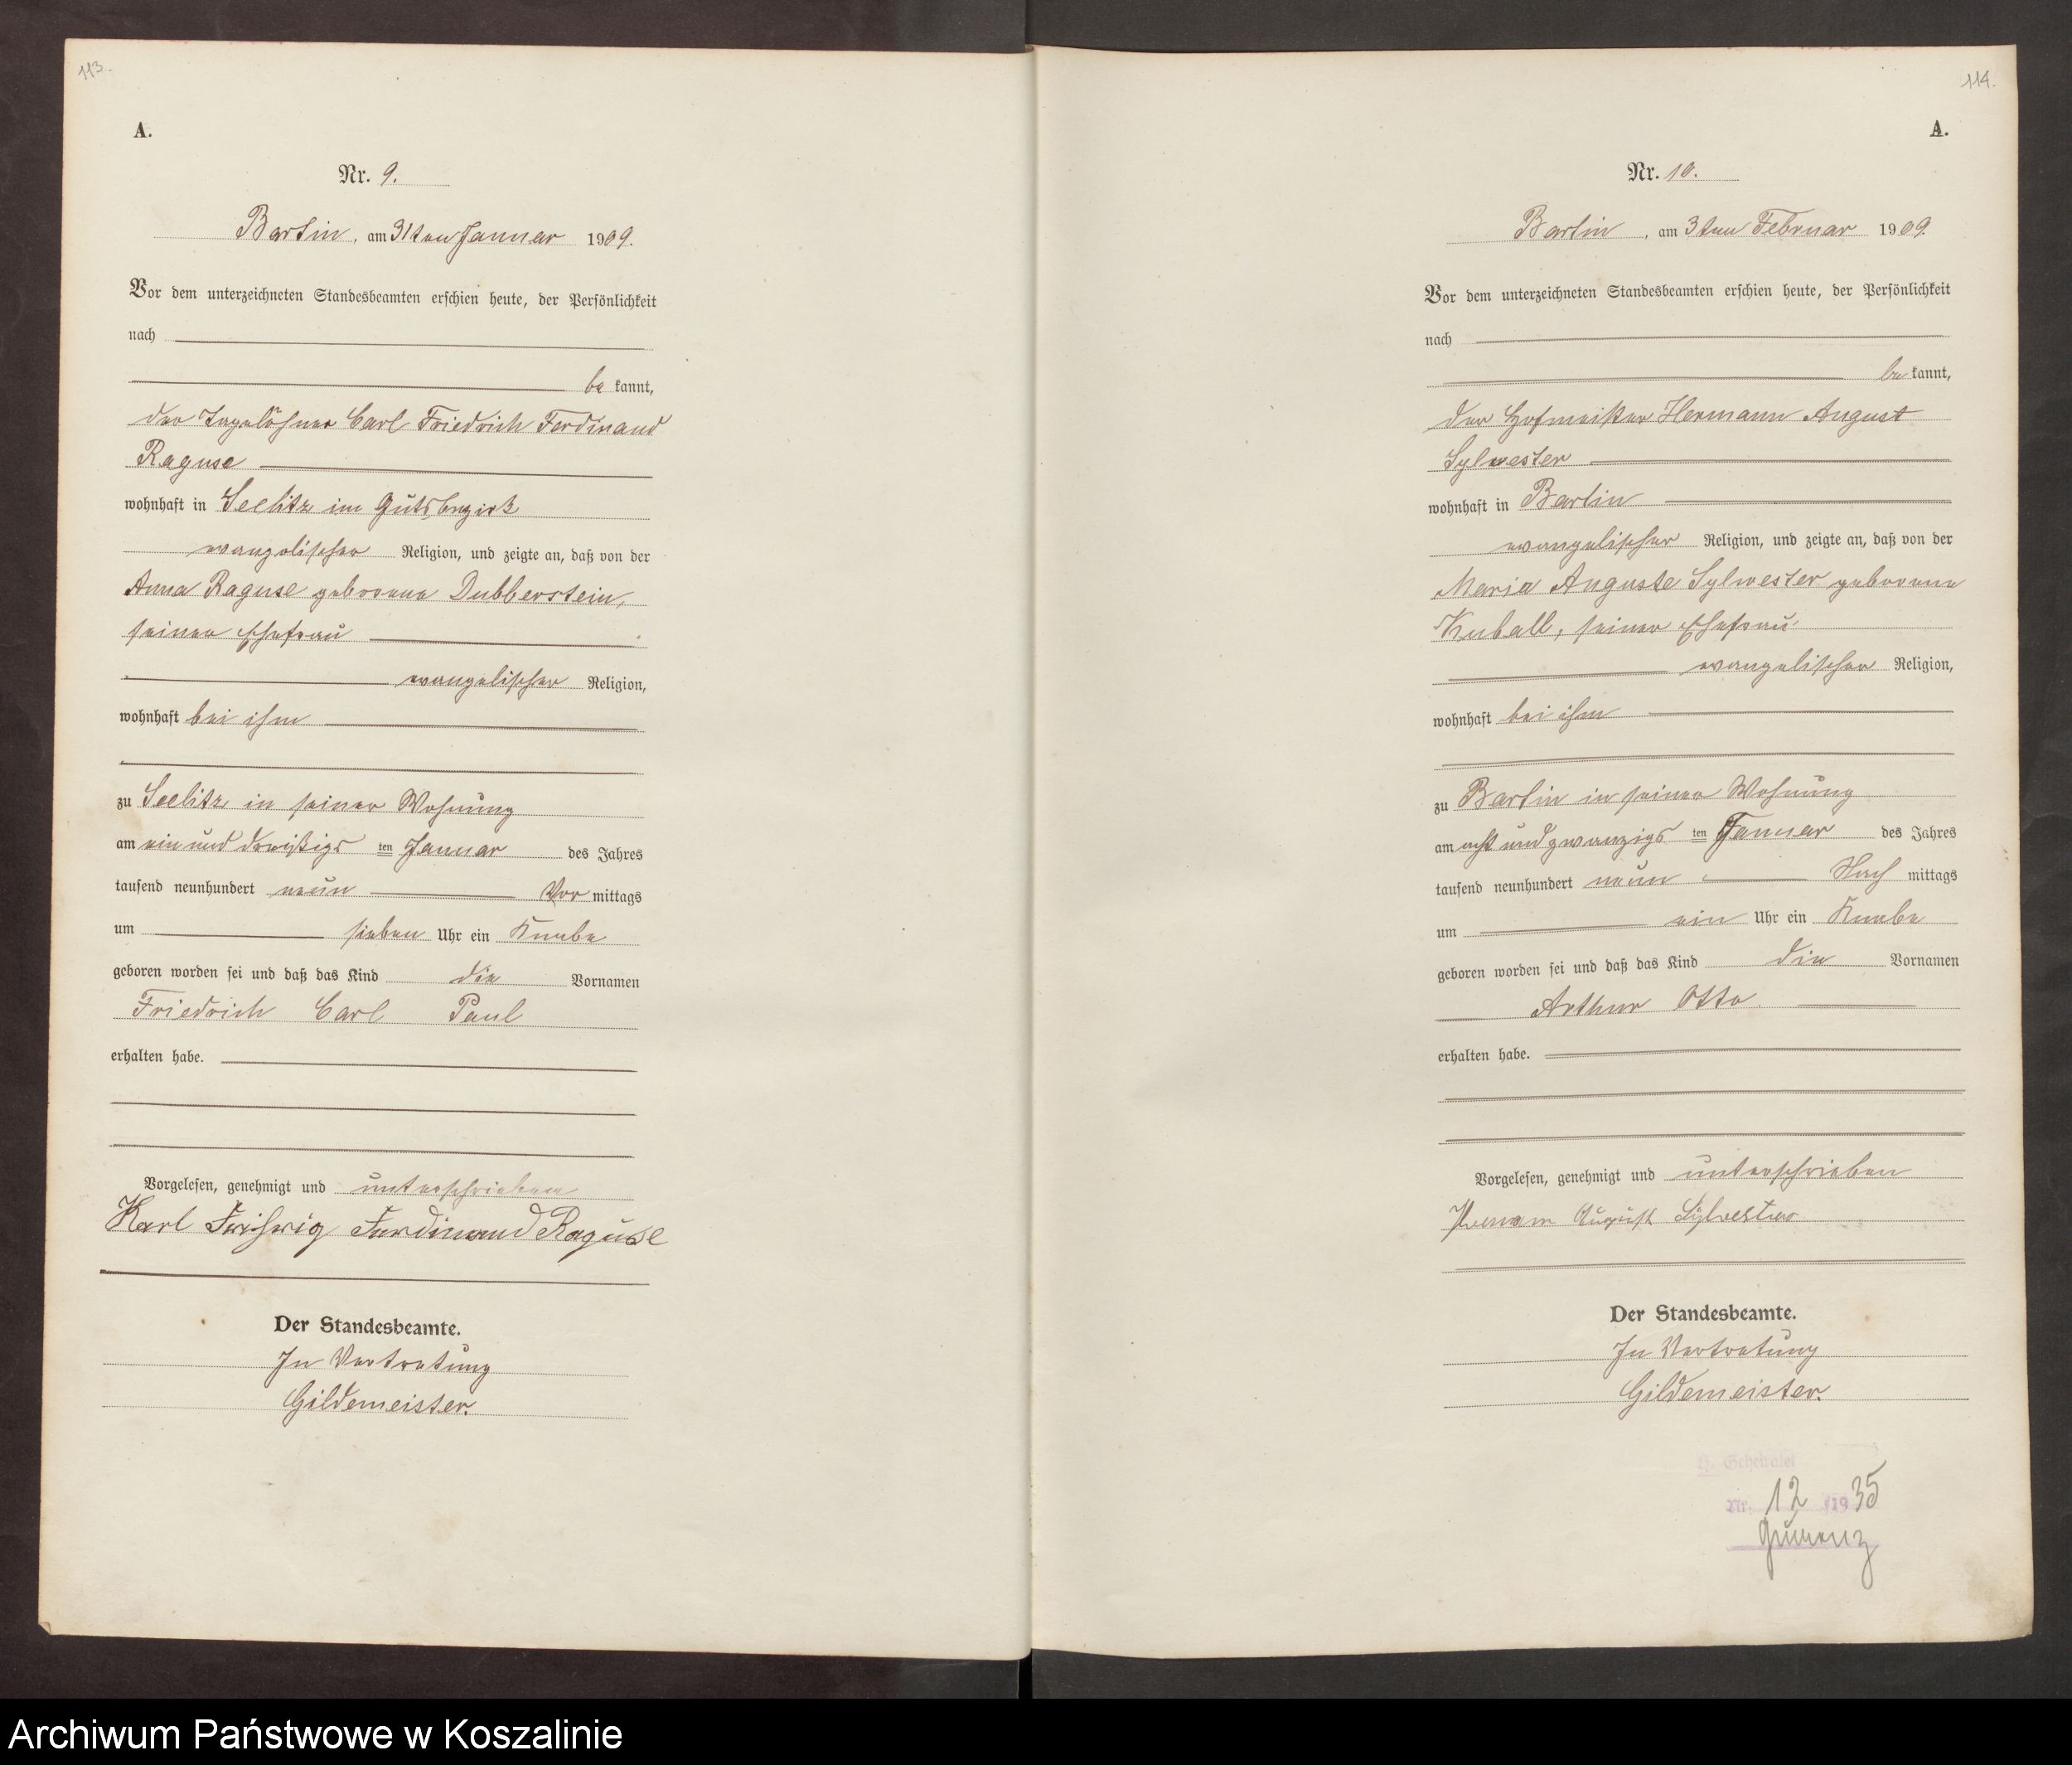 113.
A.
Nr. 9.
Bartin, am 31ten Januar 1909.
Vor dem unterzeichneten Standesbeamten erschien heute, der Persönlichkeit
nach
be kannt,
der Tagelöhner Carl Friedrich Ferdinand
Raguse
wohnhaft in Seelitz im Gutsbezirk
evangelischer Religion, und zeigte an, daß von der
Anna Raguse geborene Dubberstein,
seiner Ehefrau
evangelischer Religion,
wohnhaft bei ihm
zu Seelitz in seiner Wohnung
am ein und dreißigs ten Januar des Jahres
tausend neunhundert neun Vor mittags
um sieben Uhr ein Knabe
geboren worden sei und daß das Kind die Vornamen
Friedrich Carl Paul
erhalten habe.
Vorgelesen, genehmigt und unterschrieben
Karl Ferdinand Raguse
Der Standesbeamte.
In Vertretung
Gildemeister.
114.
A.
Nr. 10.
Bartin, am 3ten Februar 1909.
Vor dem unterzeichneten Standesbeamten erschien heute, der Persönlichkeit
nach
be kannt,
der Hofmeister Hermann August
Sylwester
wohnhaft in Bartin
evangelischer Religion, und zeigte an, daß von der
Maria Auguste Sylwester geborene
Kuball, seiner Ehefrau
evangelischer Religion,
wohnhaft bei ihm
zu Bartin in seiner Wohnung
am acht und zwanzigs ten Januar des Jahres
tausend neunhundert neun Nach mittags
um ein Uhr ein Knabe
geboren worden sei und daß das Kind die Vornamen
Arthur Otto
erhalten habe.
Vorgelesen, genehmigt und unterschrieben
August Sylvester
Der Standesbeamte.
In Vertretung
Gildemeister.
Nr. 12 /1935
Archiwum Państwowe w Koszalinie